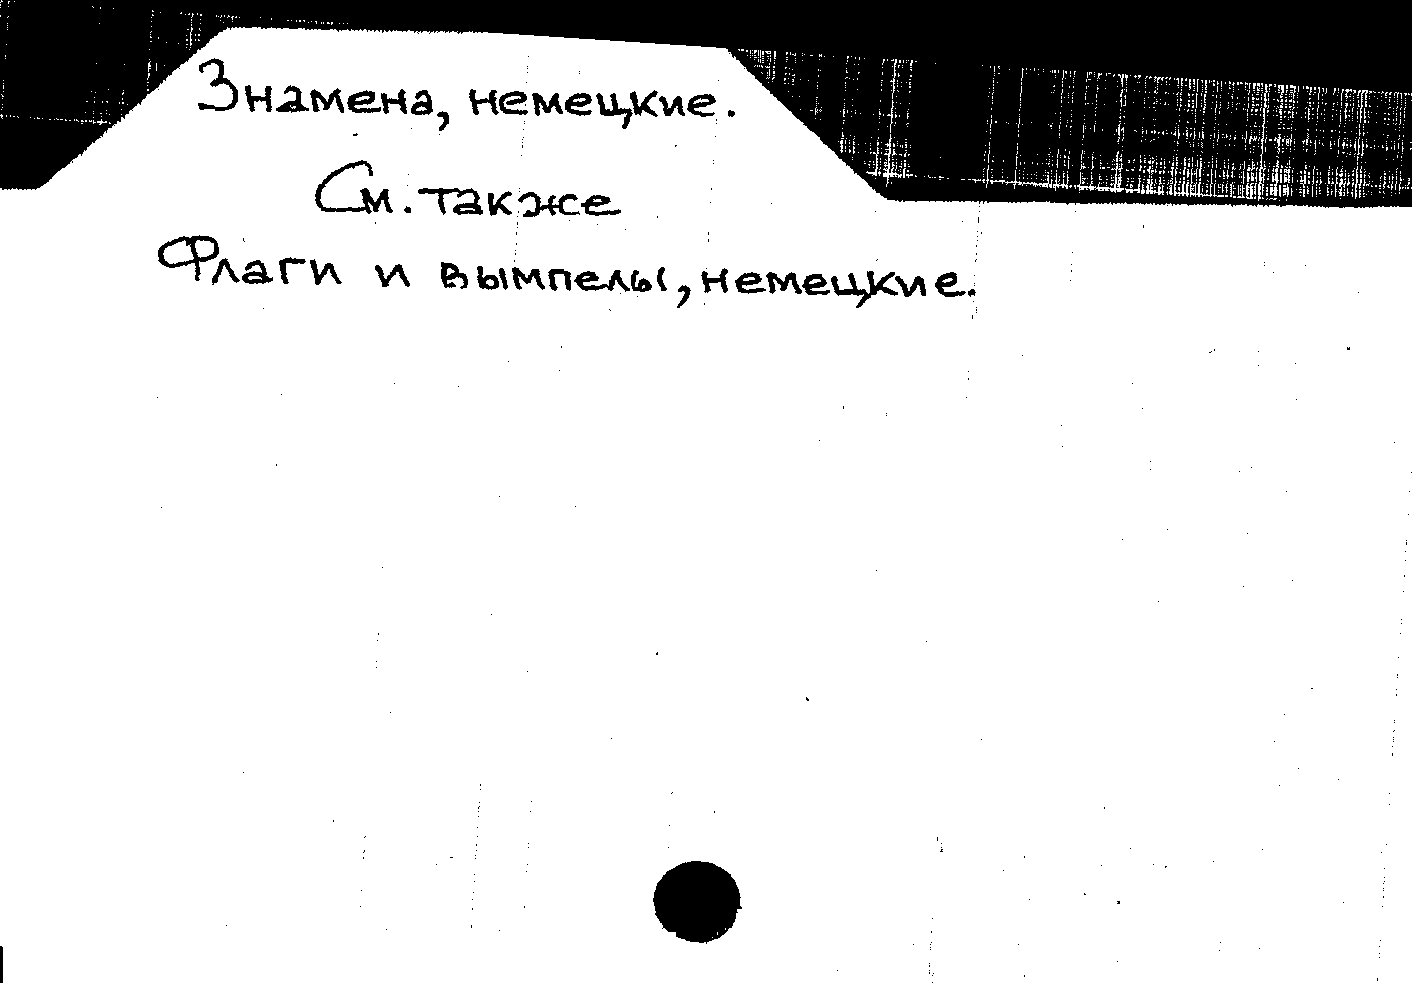 Знамена, немецкие.
См. также
Флаги и вымпелы, немецкие.